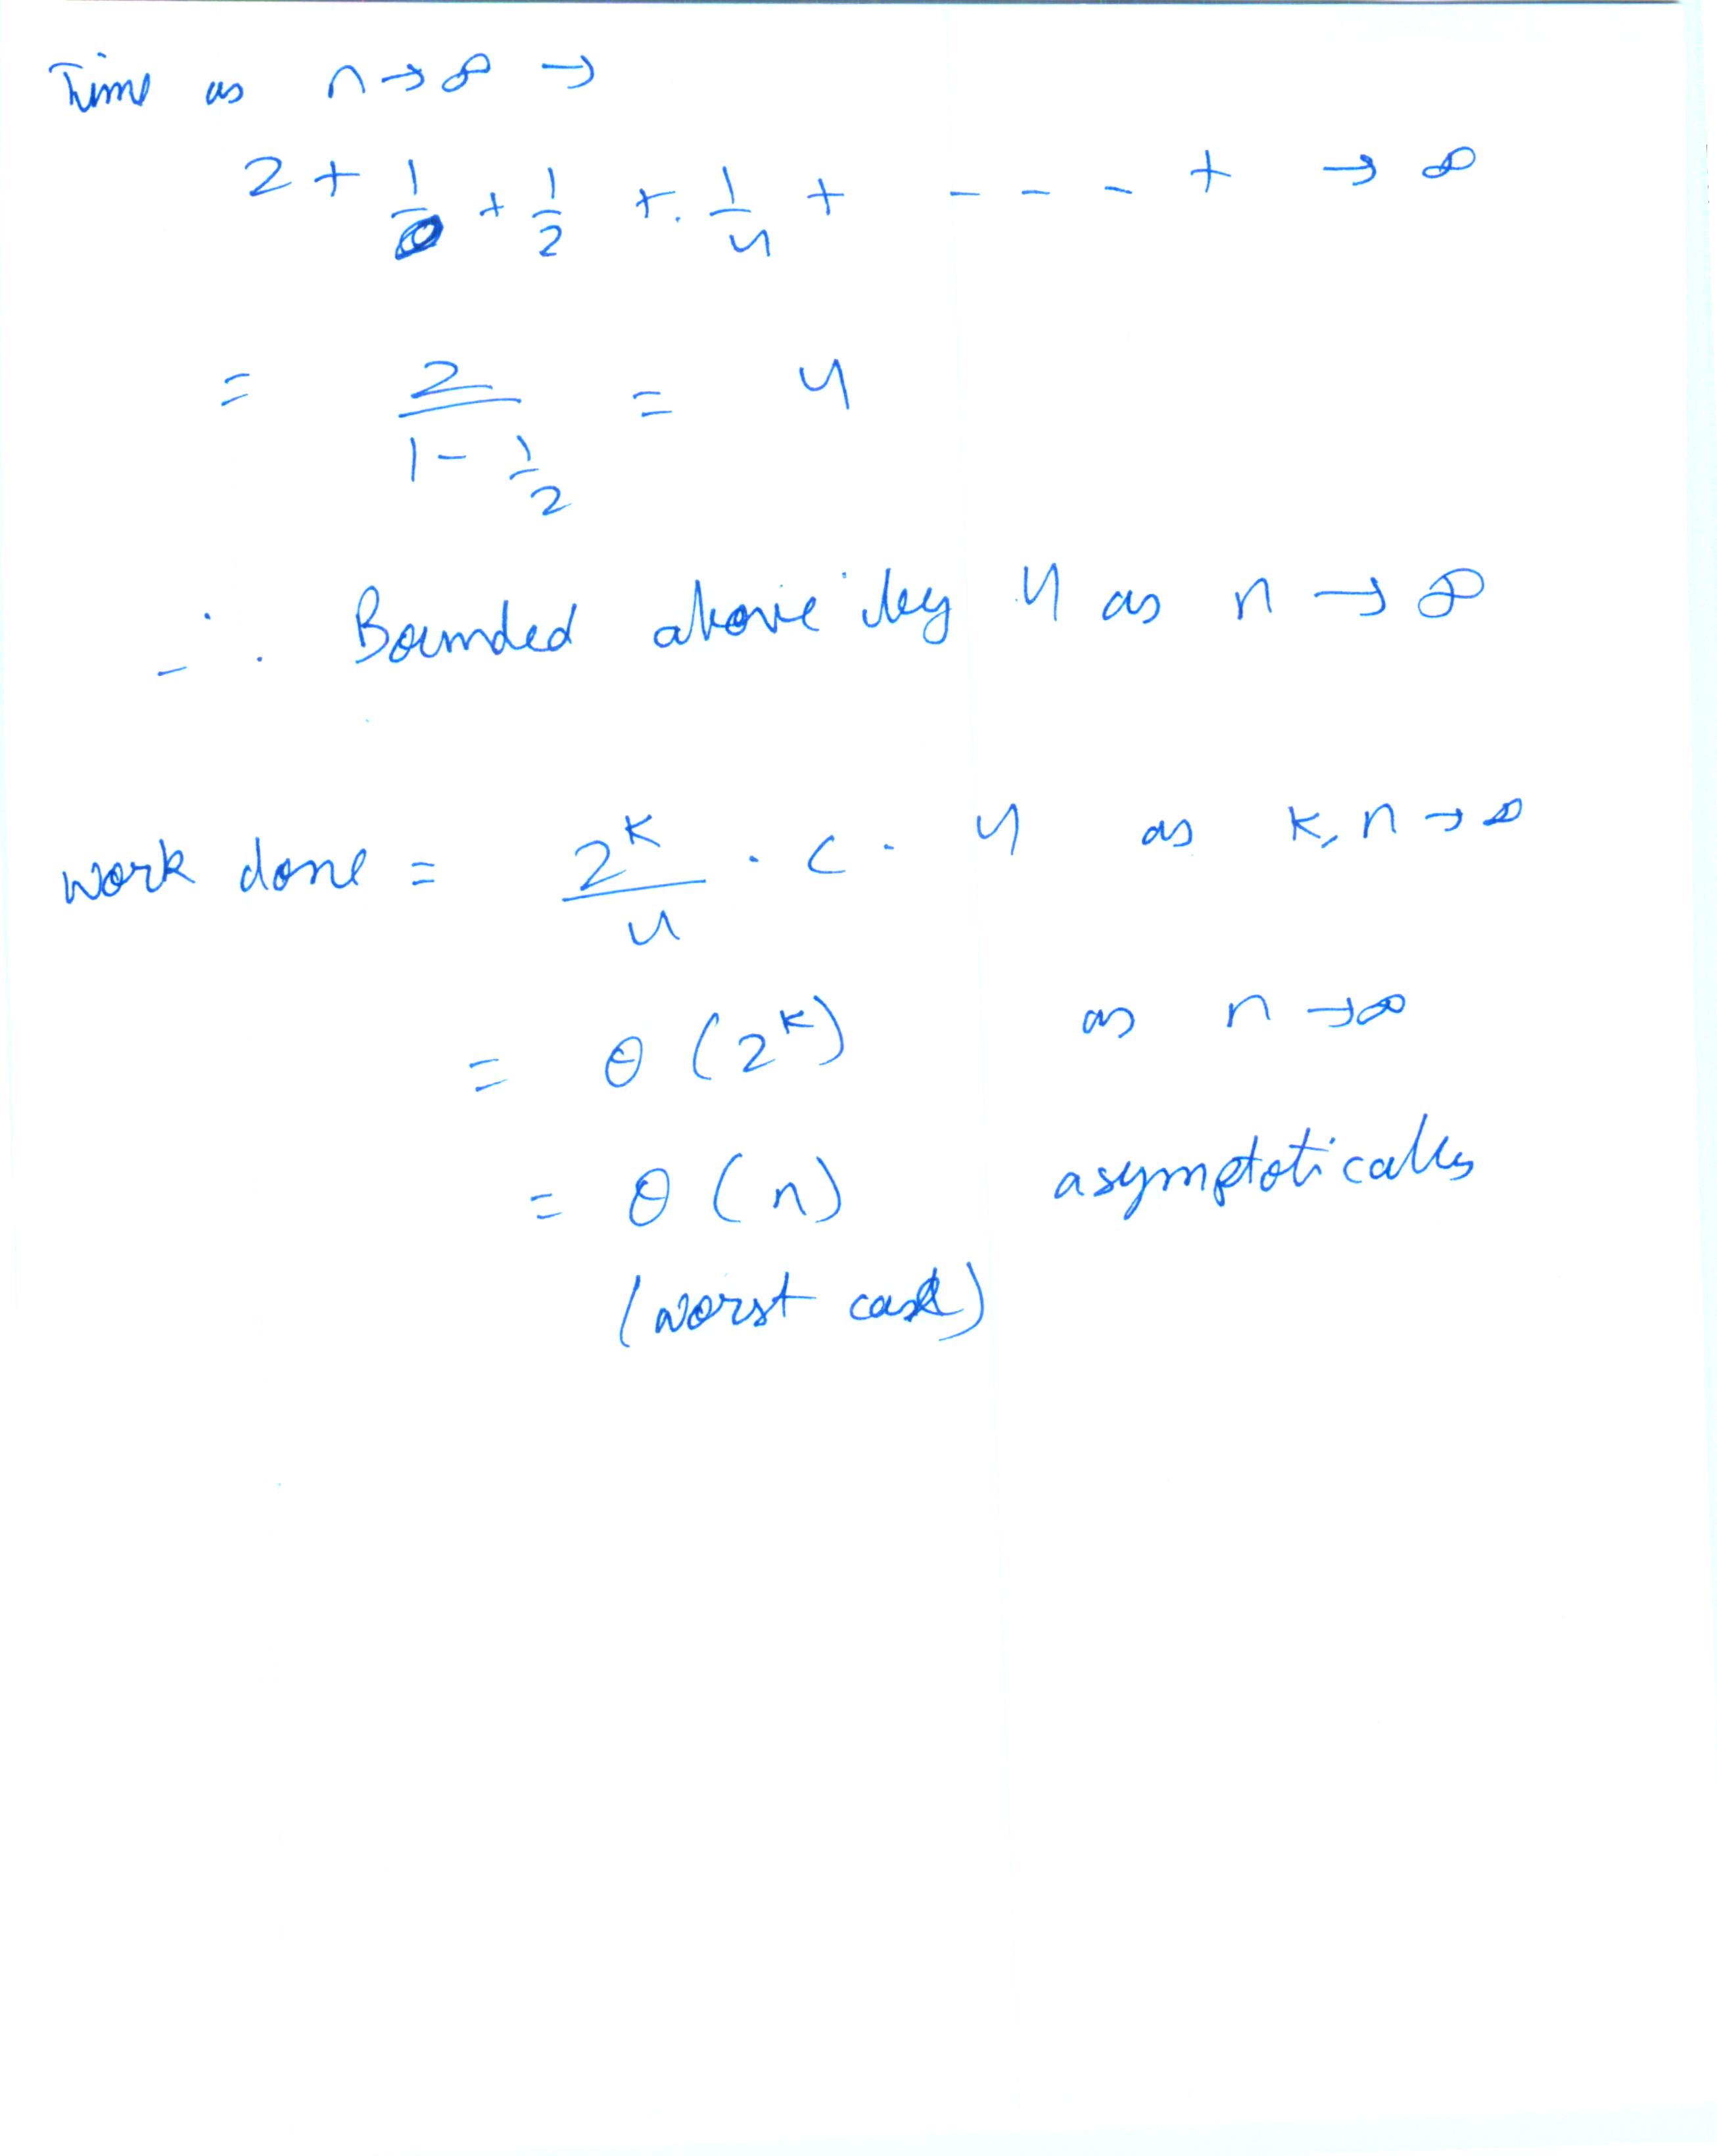 Time as n → ∞ →
2 + 1/0 + 1/2 + 1/4 + - - - + → ∞
= 2/(1 - 1/2) = 4
∴ Bounded above by 4 as n → ∞
work done = 2^k/4 . c . 4 as k, n → ∞
= θ (2^k) as n → ∞
= θ (n) asymptotically
(worst case)